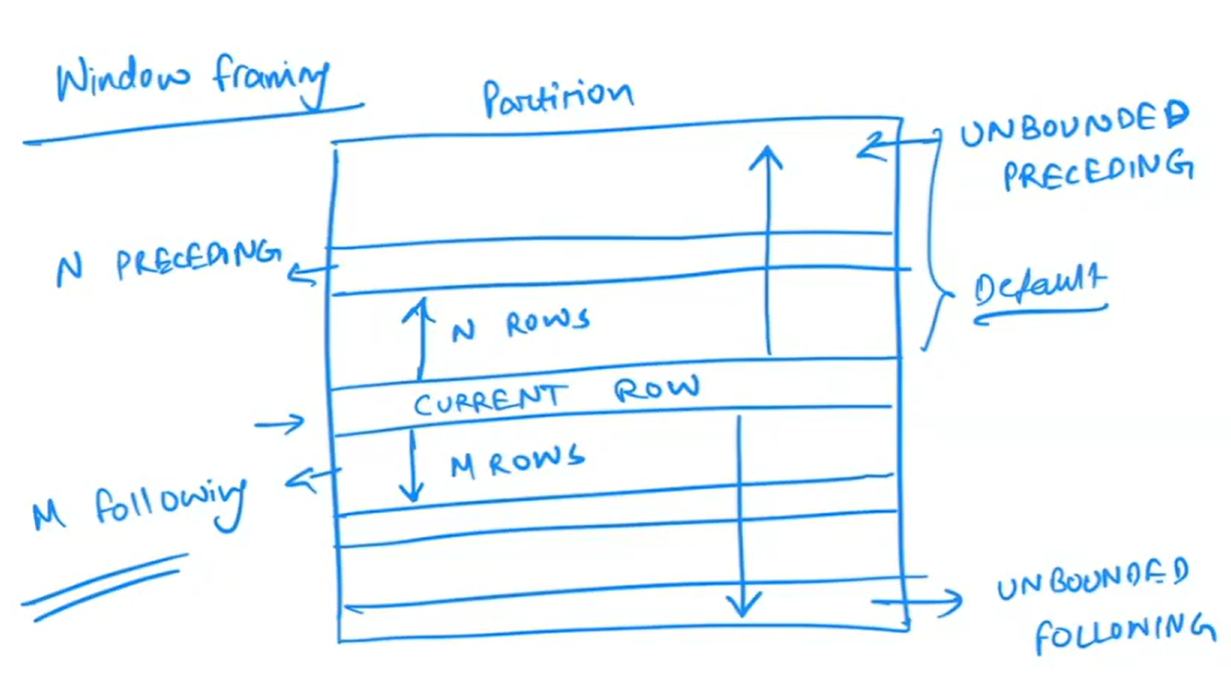 Window framing
Partition
UNBOUNDED
PRECEDING
N PRECEDING
Default
N ROWS
CURRENT ROW
M ROWS
M following
UNBOUNDED
FOLLOWING